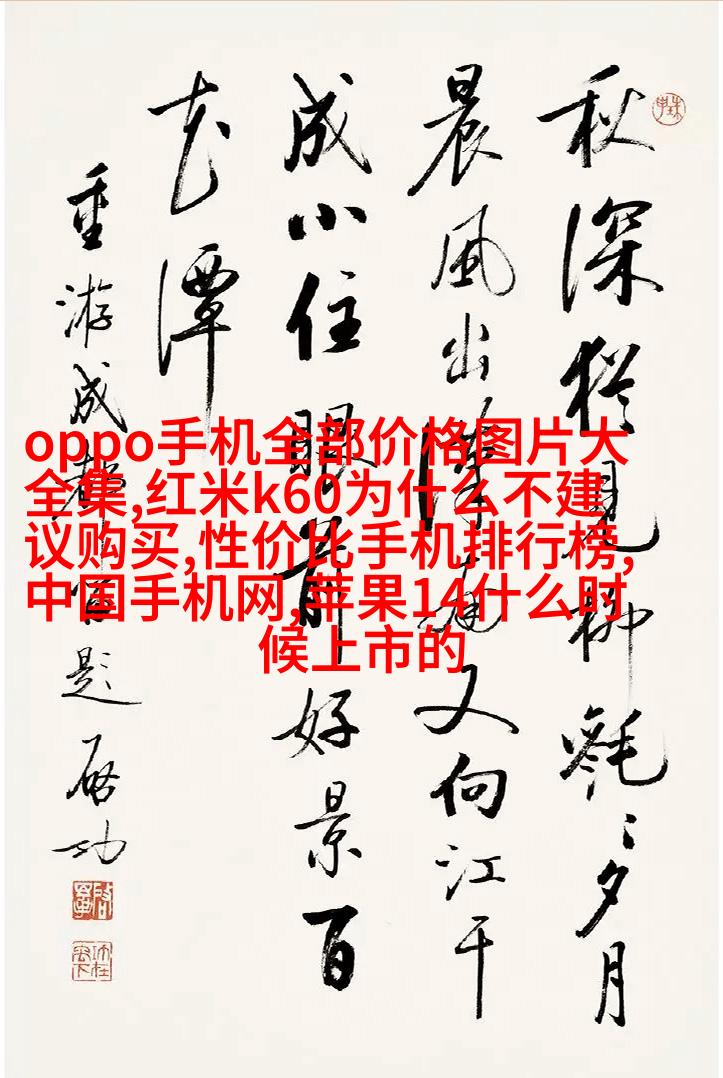 秋深猶見柳毿〻夕月
晨風出又向江干
成小住眼前好景百
花潭
重游成都題 啟功
oppo手机全部价格图片大
全集,红米k60为什么不建
议购买,性价比手机排行榜,
中国手机网,苹果14什么时
候上市的